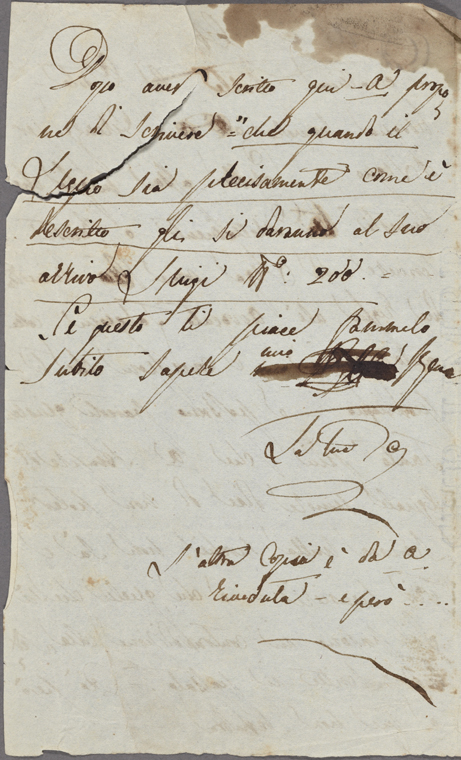 Dopo aver scritto qui - A propo
ne di scrivere = "che quando il
Legno sia precisamente come è
descritto gli si daranno al suo
arrivo Luigi N.º: 200. =
Se questo ti piace fammelo
subito sapere mio
La tua
L'altra Copia è da A
riveduta - e però ....